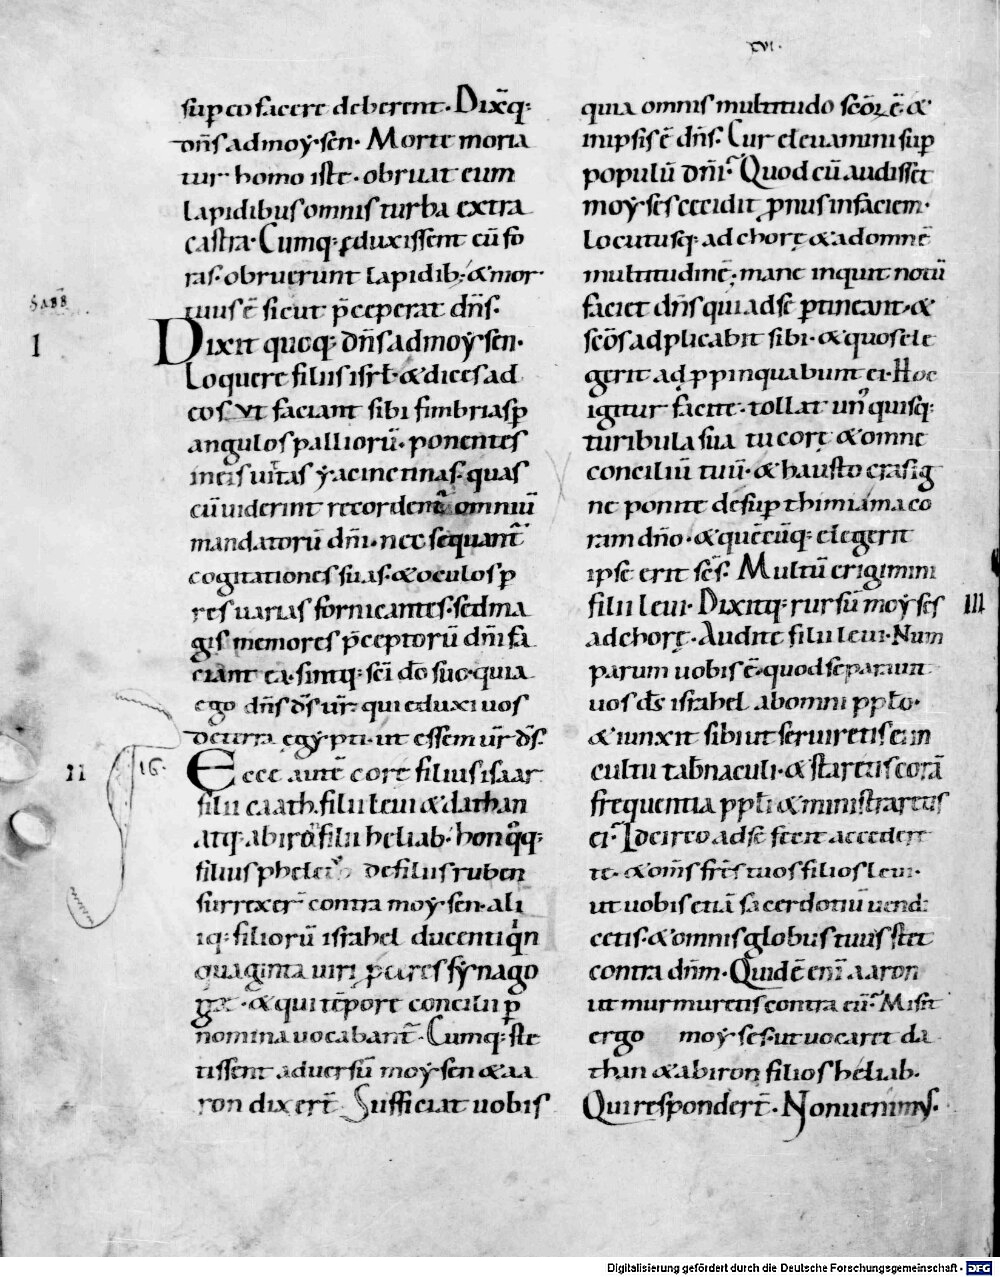 xvi.
sup eo facere deberent. Dixitq;
dn̄s ad moẏsen. Morte moria
tur homo iste. obruat eum
lapidibus omnis turba extra
castra. Cumq; eduxissent eū fo
ras. obruerunt lapidib; & mor
tuus ē sicut p̄ceperat dn̄s.
Sabb.
I
Dixit quoq; dn̄s ad moẏsen.
Loquere filiis isrl̄. & dices ad
eos. ut faciant sibi fimbrias p
angulos palliorū. ponentes
in eis uittas ẏacinctinas. quas
cū uiderint recordent̄ omniū
mandatorū dn̄i. nec sequant̄
cogitationes suas. & oculos p
res uarias fornicantes. sed ma
gis memores p̄ceptorū dn̄i fa
ciant ea. sintq; sc̄i dō suo. quia
ego dn̄s ds̄ ur̄. qui eduxi uos
de terra ęgẏpti. ut essem ur̄ ds̄.
II
16.
Ecce autē core filius isaar
filii caath. filii leui & dathan
atq. abirō filii heliab. hon qͦq;
filius pheleth de filiis ruben
surrexer̄ contra moẏsen. ali
iq; filiorū israhel ducenti qͥn
quaginta uiri p̄ceres sẏnago
gę. & qui tēpore concilii p
nomina uocabant̄. Cumq; ste
tissent aduersū moẏsen & aa
ron dixer̄t. Sufficiat uobis
quia omnis multitudo sc̄oꝝ ē &
in ipsis ē dn̄s. Cur eleuamini sup
populū dn̄i. Quod cū audisset
moẏses cecidit p̄nus in faciem.
locutusq; ad chorę & ad omnē
multitudinē. mane inquit notū
faciet dn̄s qui ad sē p̄tineant. &
sc̄os adplicabit sibi. & quos ele
gerit ad p̄pinquabunt ei. Hoc
igitur facite. tollat un᷒quisq;
turibula sua tu corę & omne
conciliū tuū. & hausto cras ig
ne ponite desup thimiama co
ram dn̄o. & quēcūq; elegerit
ipse erit sc̄s. Multū erigimini
filii leui. Dixitq; rursū moẏses
III
ad chorę. Audite filii leui. Num
parum uobis ē. quod separauit
uos ds̄ israhel ab omni pplō.
& iunxit sibi ut seruiretis ei in
cultu tab̄naculi. & staretis corā
frequentia ppl̄i & ministraretis
ei. Idcirco ad sē fecit accedere
te. & om̄s fr̄es tuos filios leui.
ut uobis etiā sacerdotiū uendi
cetis. & omnis globus tuus stet
contra dn̄m. Quid ē eni aaron
ut murmuretis contra eū. Misit
ergo moẏses. ut uocaret da
than & abiron filios heliab.
Qui responder̄t. Non uenim᷒.
Digitalisierung gefördert durch die Deutsche Forschungsgemeinschaft - DFG